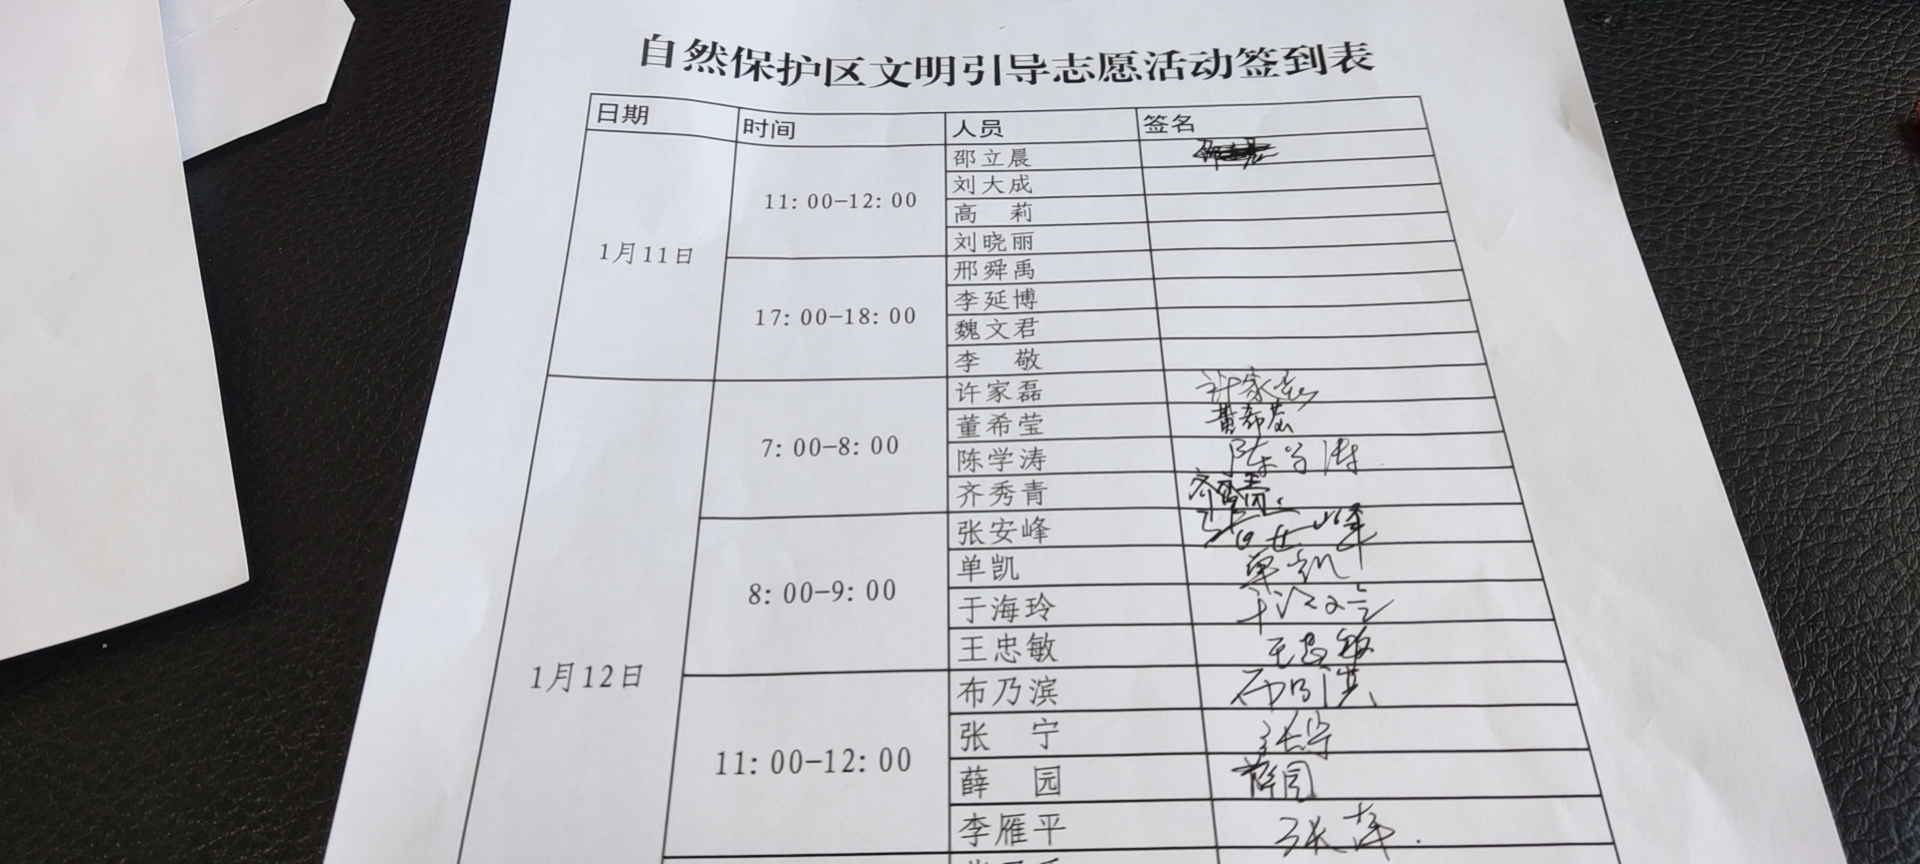 自然保护区文明引导志愿活动签到表
日期 时间 人员 签名
1月11日 11:00-12:00 邵立晨
刘大成
高 莉
刘晓丽
17:00-18:00 邢舜禹
李延博
魏文君
李 敬
1月12日 7:00-8:00 许家磊 许家磊
董希莹 董希莹
陈学涛 陈学涛
齐秀青 齐秀青
8:00-9:00 张安峰 张安峰
单凯 单凯
于海玲 于海玲
王忠敏 王忠敏
11:00-12:00 布乃滨 布乃滨
张 宁 张宁
薛 园 薛园
李雁平 张萍